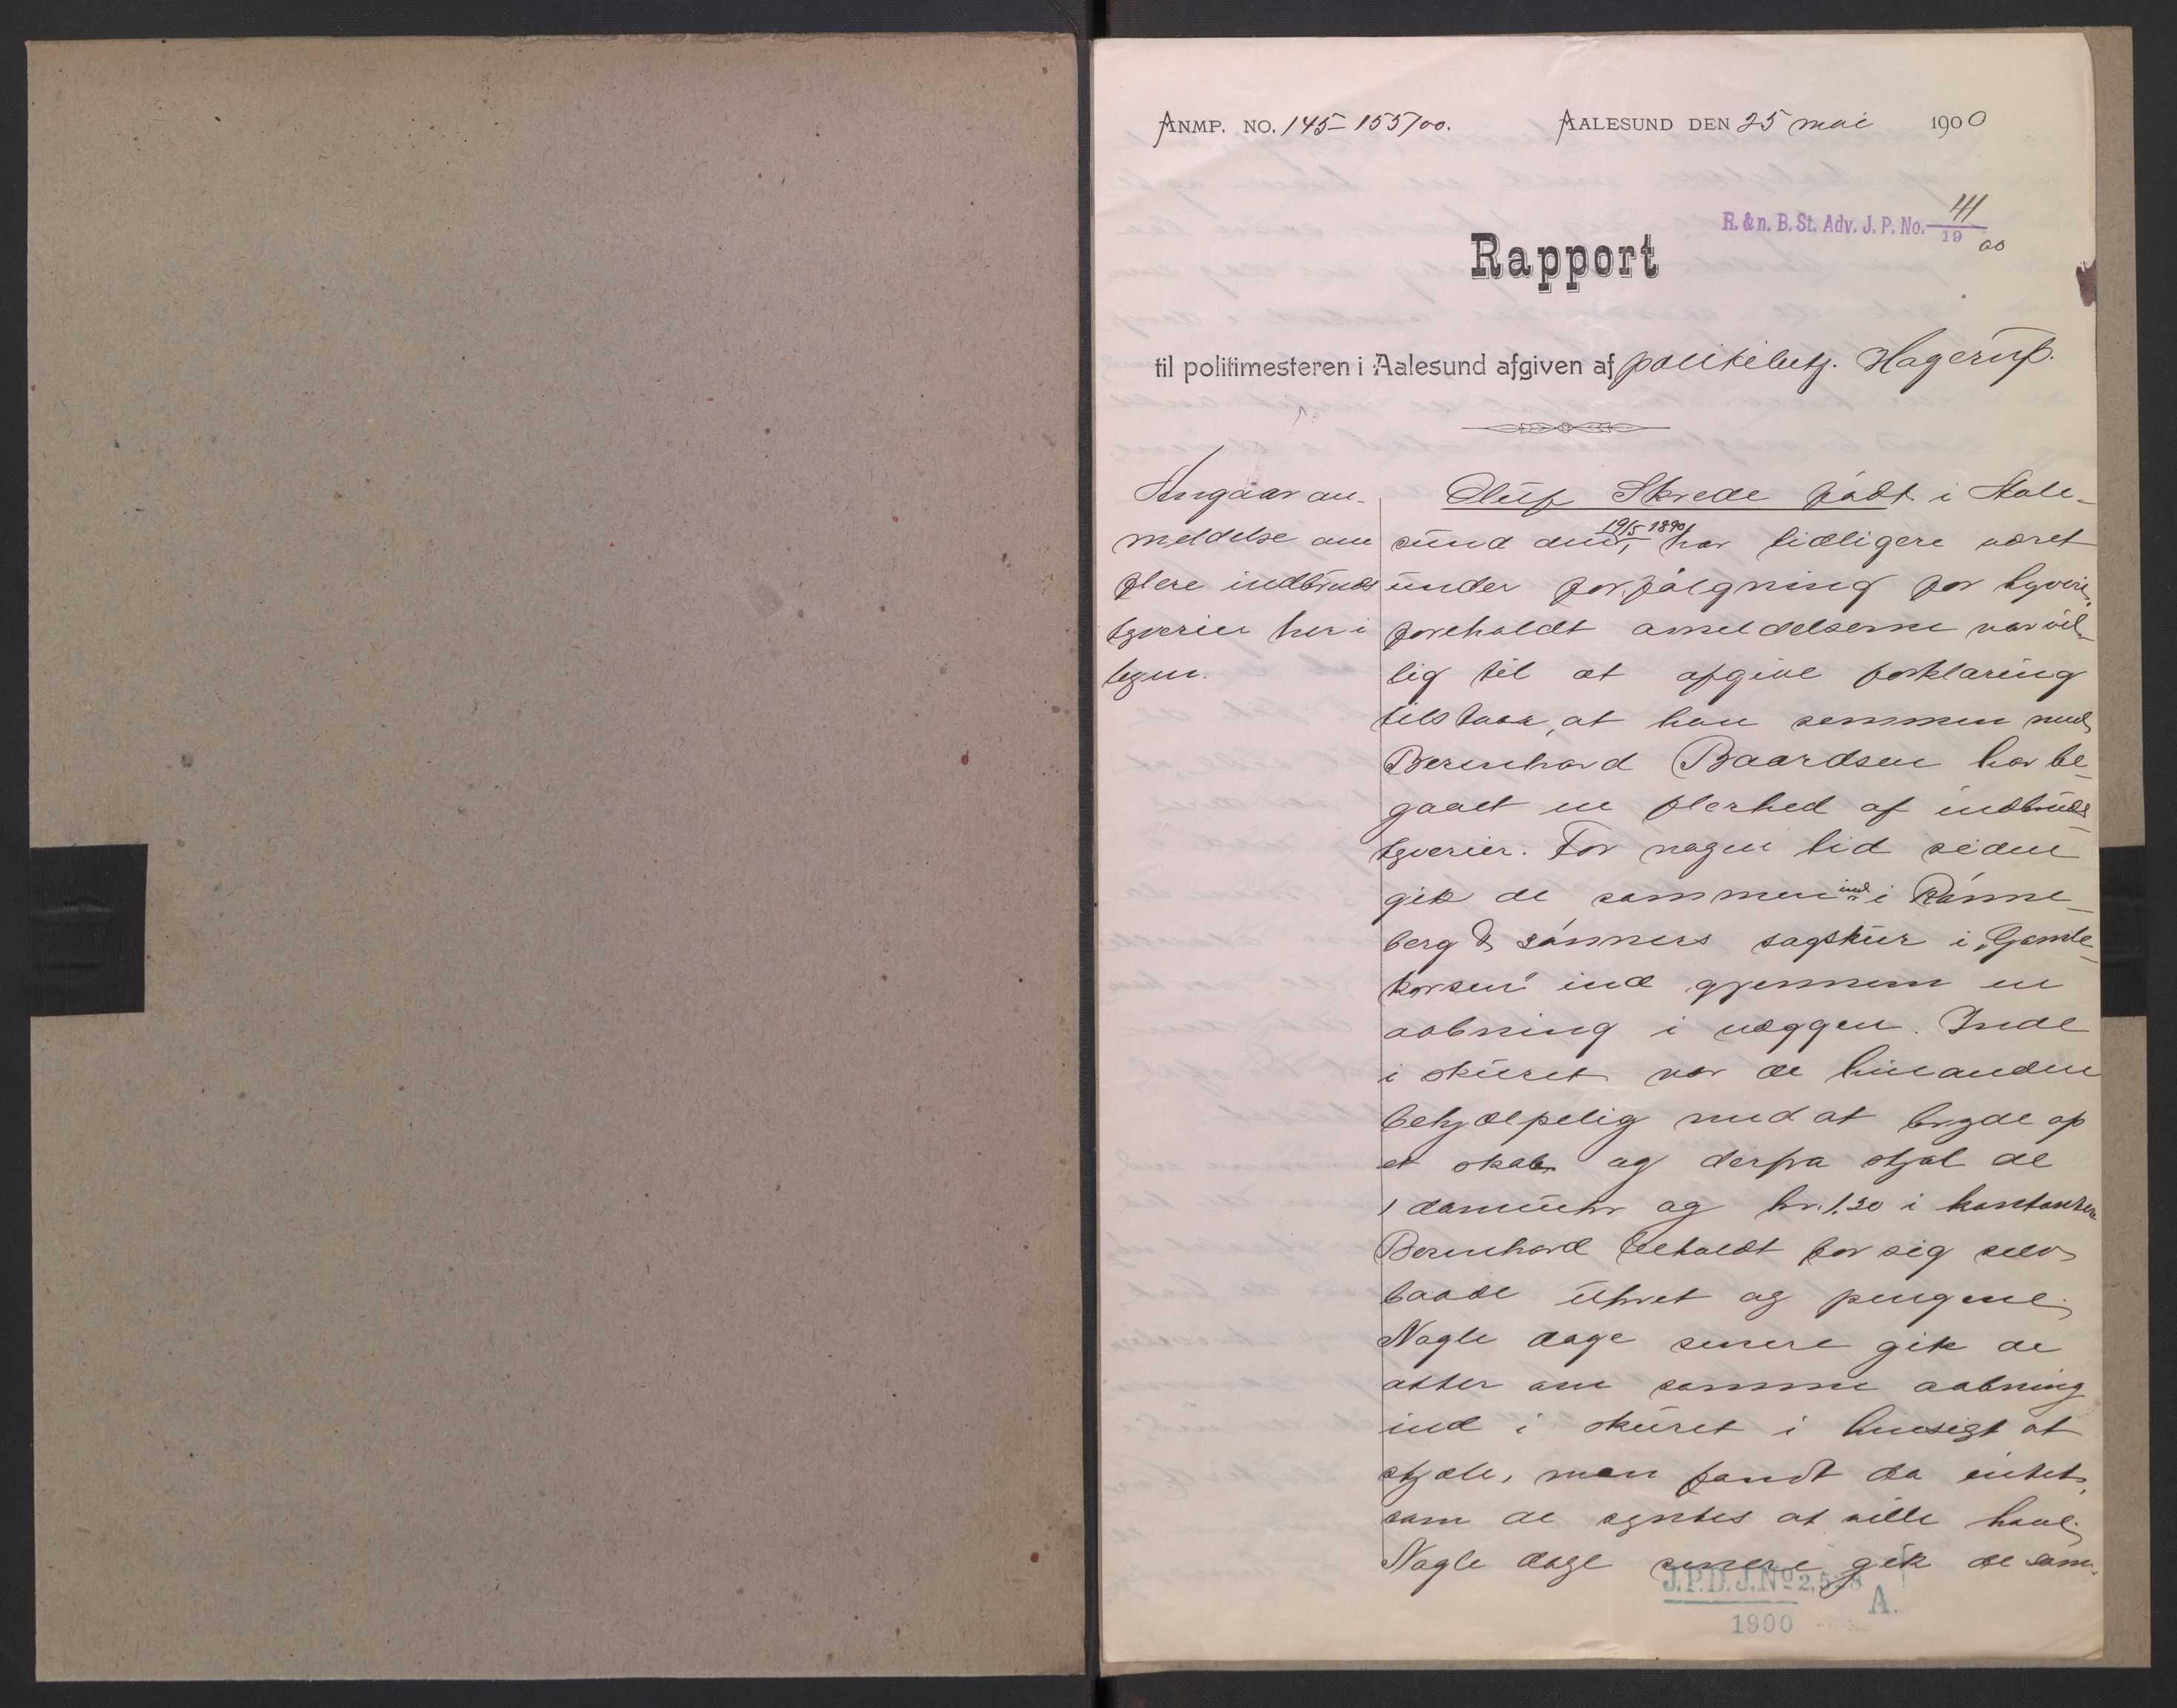 ANMP. NO. 145-155/00. AALESUND DEN 25 mai 1900
R. & n. B. St. Adv. J. P. No. 41/1900
Rapport
til politimesteren i Aalesund afgiven af politibetj. Hagerup.
Angaar an-
meldelse om
flere indbruds
tyverier her i
byen.
Oluf Skrede født i Aale-
sund den 19/5 1890, har tidligere været
under forfølgning for tyveri,
foreholdt anmeldelserne var vil-
lig til at afgive forklaring
tilstaar, at han sammen med
Bernhard Baardsen har be-
gaaet en flerhed af indbruds
tyverier. For nogen tid siden
gik de sammen ind i Rønne-
berg & sønners sagskur i "Gamle-
korsen" ind gjennem en
aabning i væggen. Inde
i skuret var de hinanden
behjælpelig med at bryde op
et skab og derfra stjal de
1 dameuhr og kr. 1.30 i kontanter
Bernhard beholdt for sig selv
baade uhret og pengene.
Nogle dage senere gik de
atter om samme aabning
ind i skuret i hensigt at
stjæle, men fandt da intet,
som de syntes at ville have.
Nogle dage senere gik de sam-
J.P.D.J.No 2,528 A.
1900